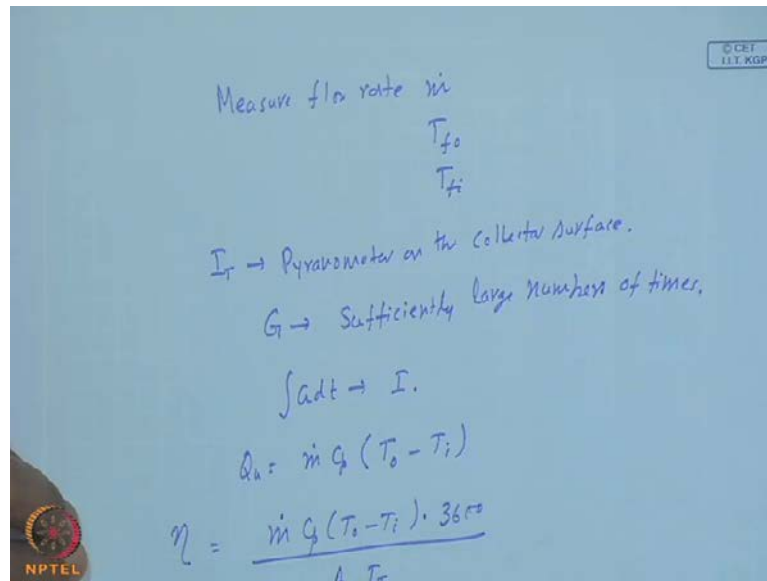 © CET
I.I.T. KGP
Measure flow rate ṁ
T_fo
T_fi
I_T → Pyranometer on the Collector surface.
G → Sufficiently large numbers of times.
∫Gdt → I.
Q_u = ṁ C_p (T_o - T_i)
η = ṁ C_p (T_o - T_i) · 3600
A_c I_T
NPTEL